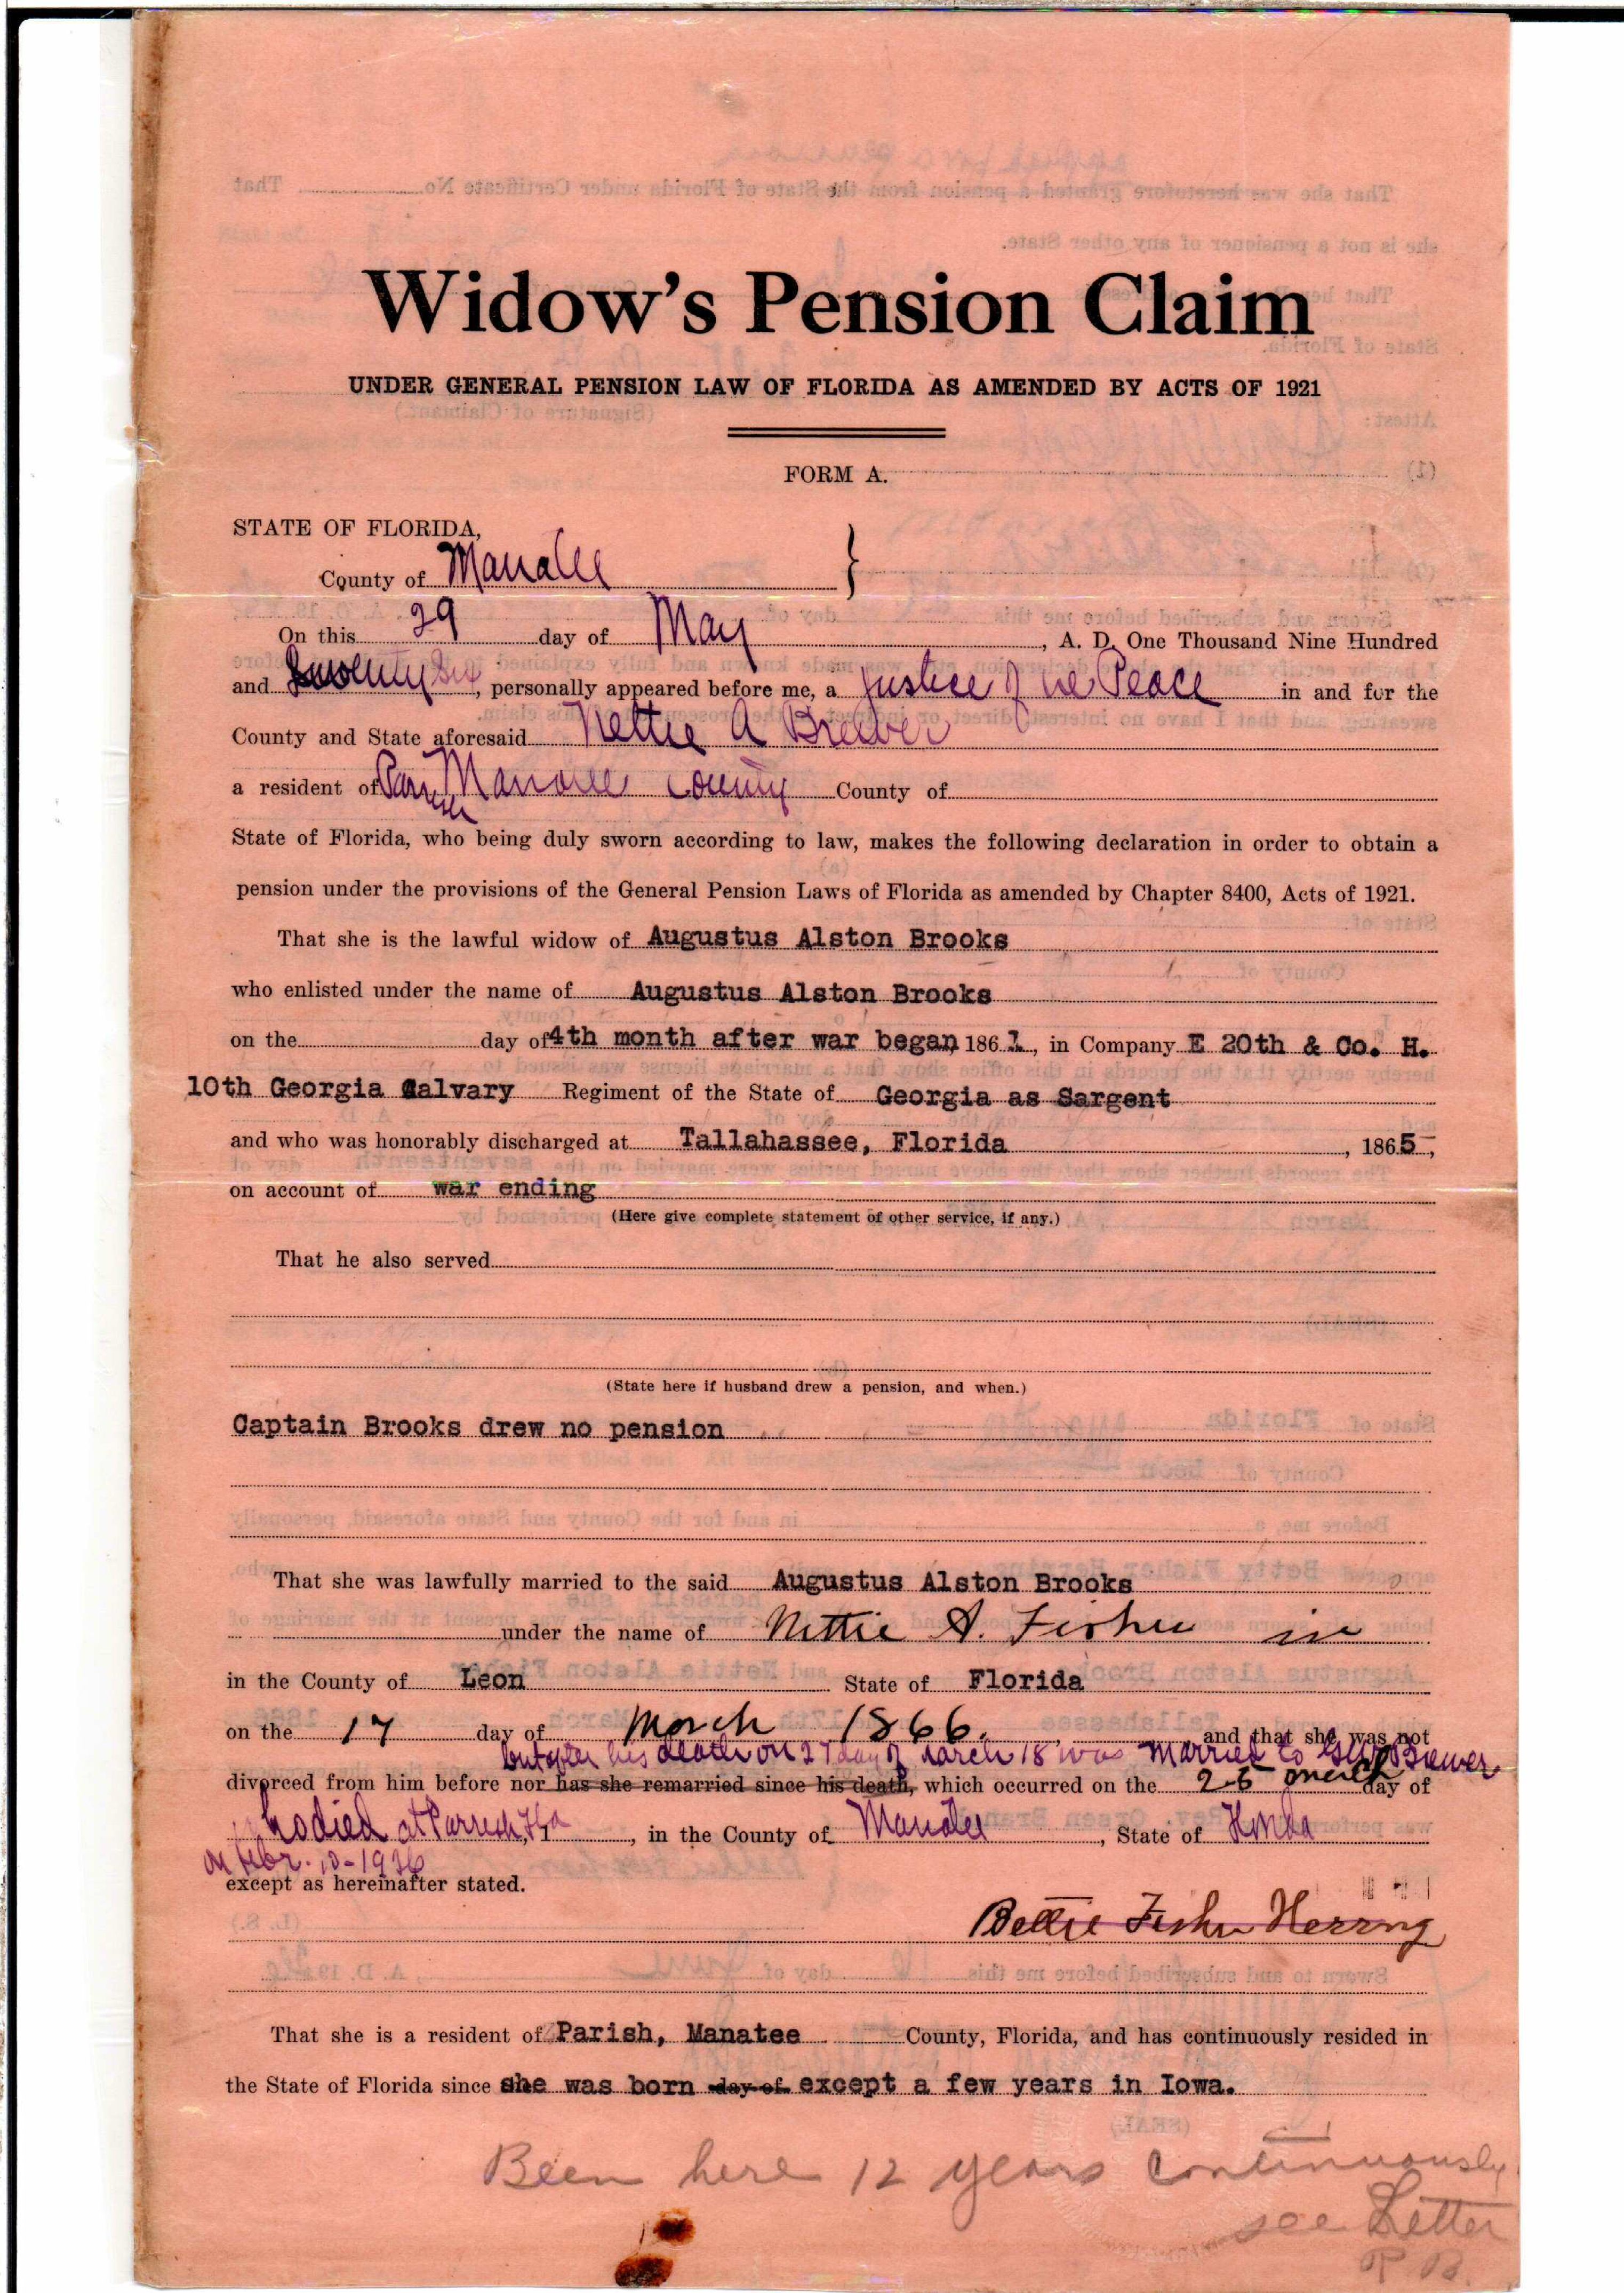 Widow's Pension Claim
UNDER GENERAL PENSION LAW OF FLORIDA AS AMENDED BY ACTS OF 1921
FORM A.
STATE OF FLORIDA,
County of Manatee }
On this 29 day of May, A. D. One Thousand Nine Hundred
and Twenty Six, personally appeared before me, a Justice of the Peace in and for the
County and State aforesaid Nettie A Brewer
a resident of Parrish Manatee County County of
State of Florida, who being duly sworn according to law, makes the following declaration in order to obtain a
pension under the provisions of the General Pension Laws of Florida as amended by Chapter 8400, Acts of 1921.
That she is the lawful widow of Augustus Alston Brooks
who enlisted under the name of Augustus Alston Brooks
on the day of 4th month after war began 1861, in Company E 20th & Co. H.
10th Georgia Calvary Regiment of the State of Georgia as Sargent
and who was honorably discharged at Tallahassee, Florida, 1865,
on account of war ending
(Here give complete statement of other service, if any.)
That he also served
(State here if husband drew a pension, and when.)
Captain Brooks drew no pension
That she was lawfully married to the said Augustus Alston Brooks
under the name of Nettie A. Fisher in
in the County of Leon State of Florida
on the 17 day of March 1866. and that she was not
but after his death on 27 day of March 18 was married to Brewer
divorced from him before nor has she remarried since his death, which occurred on the 26 march day of
who died at Parrish, Fla, in the County of Manatee, State of Florida
on Febr. 10-1926
except as hereinafter stated.
Bettie Fisher Herring
That she is a resident of Parish, Manatee County, Florida, and has continuously resided in
the State of Florida since she was born day of except a few years in Iowa.
Been here 12 years continuously
see Letter
R B.